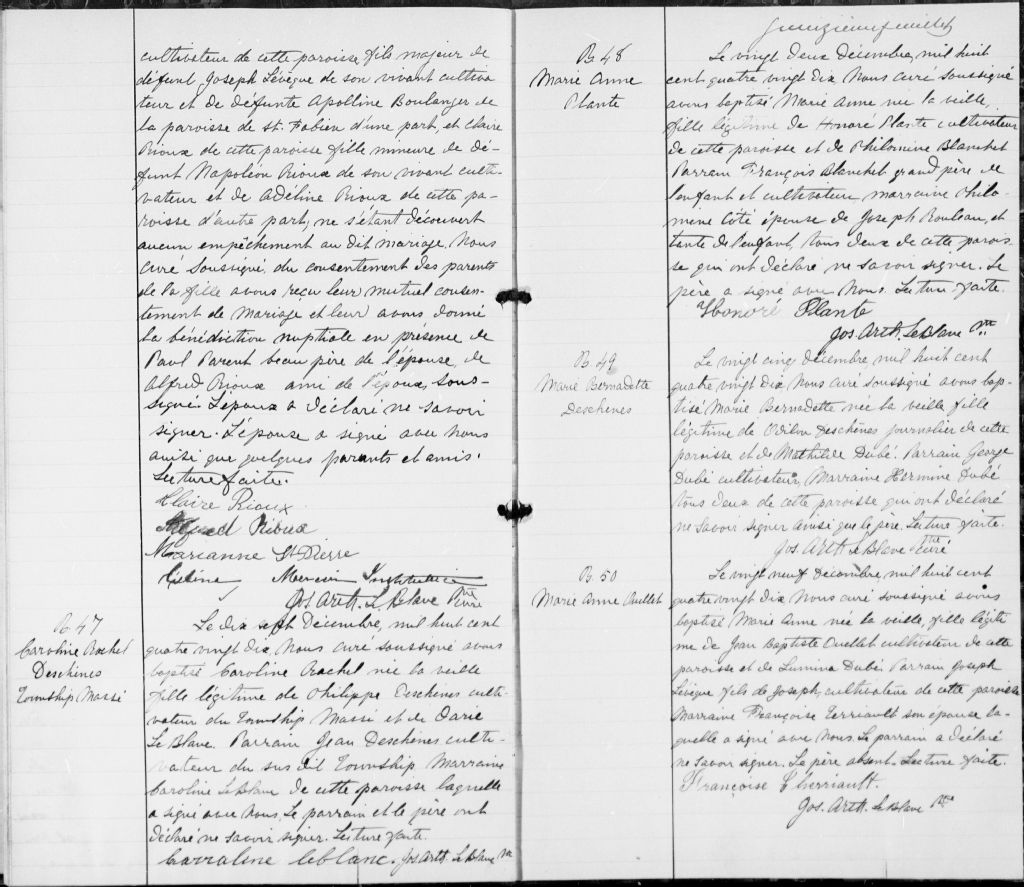 cultivateur de cette paroisse, fils majeur de
défunt Joseph Lévêque de son vivant cultiva-
teur et de défunte Apolline Boulanger de
la paroisse de St. Fabien d'une part, et Claire
Rioux de cette paroisse fille mineure de dé-
funt Napoléon Rioux de son vivant culti-
vateur et de Adéline Rioux de cette pa-
roisse d'autre part, ne s'étant découvert
aucun empêchement au dit mariage, Nous
curé soussigné, du consentement des parents
de la fille avons reçu leur mutuel consen-
tement de mariage et leur avons donné
la bénédiction nuptiale en présence de
Paul Parent beau père de l'épouse, de
Alfred Rioux ami de l'époux, sous-
signé. L'époux a déclaré ne savoir
signer. L'épouse a signé avec nous
ainsi que quelques parents et amis.
Lecture faite.
Claire Rioux
Alfred Rioux
Marianne St Pierre
Mercier Institutrice
Jos. Arth. LeBlanc Ptre curé
B. 47
Caroline Rachel
Deschênes
Township Massé
Le dix sept Décembre, mil huit cent
quatre vingt dix Nous curé soussigné avons
baptisé Caroline Rachel née la veille
fille légitime de Philippe Deschênes culti-
vateur du Township Massé et de Darie
LeBlanc. Parrain Jean Deschênes culti-
vateur du sus dit Township Marraine
Caroline LeBlanc de cette paroisse laquelle
a signé avec nous. Le parrain et le père ont
déclaré ne savoir signer. Lecture faite.
Carraline leblanc. Jos Arth. LeBlanc Ptre
B. 48
Marie Anne
Plante
feuillet
Le vingt deux décembre, mil huit
cent quatre vingt dix Nous curé soussigné
avons baptisé Marie Anne née la veille,
fille légitime de Honoré Plante cultivateur
de cette paroisse et de Philomine Blanchet
Parrain François Blanchet grand père de
l'enfant et cultivateur marraine Philo-
mene Côté épouse de Joseph Rouleau, et
tante de l'enfant, tous deux de cette parois-
se qui ont déclaré ne savoir signer. Le
père a signé avec Nous. Lecture faite.
Honoré Plante
Jos. Arth. LeBlanc Ptre
B. 49
Marie Bernadette
Deschenes
Le vingt cinq décembre, mil huit cent
quatre vingt dix Nous curé soussigné avons bap-
tisé Marie Bernadette née la veille fille
légitime de Odilon Deschênes journalier de cette
paroisse et de Mathilde Dubé. Parrain George
Dubé cultivateur, Marraine Hermine Dubé
tous deux de cette paroisse qui ont déclaré
ne savoir signer ainsi que le père. Lecture faite.
Jos. Arth LeBlanc Ptre curé
B. 50
Marie Anne Ouellet
Le vingt neuf Décembre, mil huit cent
quatre vingt dix Nous curé soussigné avons
baptisé Marie Anne née la veille, fille légiti
me de Jean Baptiste Ouellet cultivateur de cette
paroisse et de Lumina Dubé. Parrain Joseph
Lévêque fils de Joseph, cultivateur de cette paroisse
Marraine Françoise Terriault son épouse la-
quelle a signé avec Nous. Le parrain a déclaré
ne savoir signer. Le père absent. Lecture faite.
Françoise Therriault.
Jos. Arth. LeBlanc Ptre